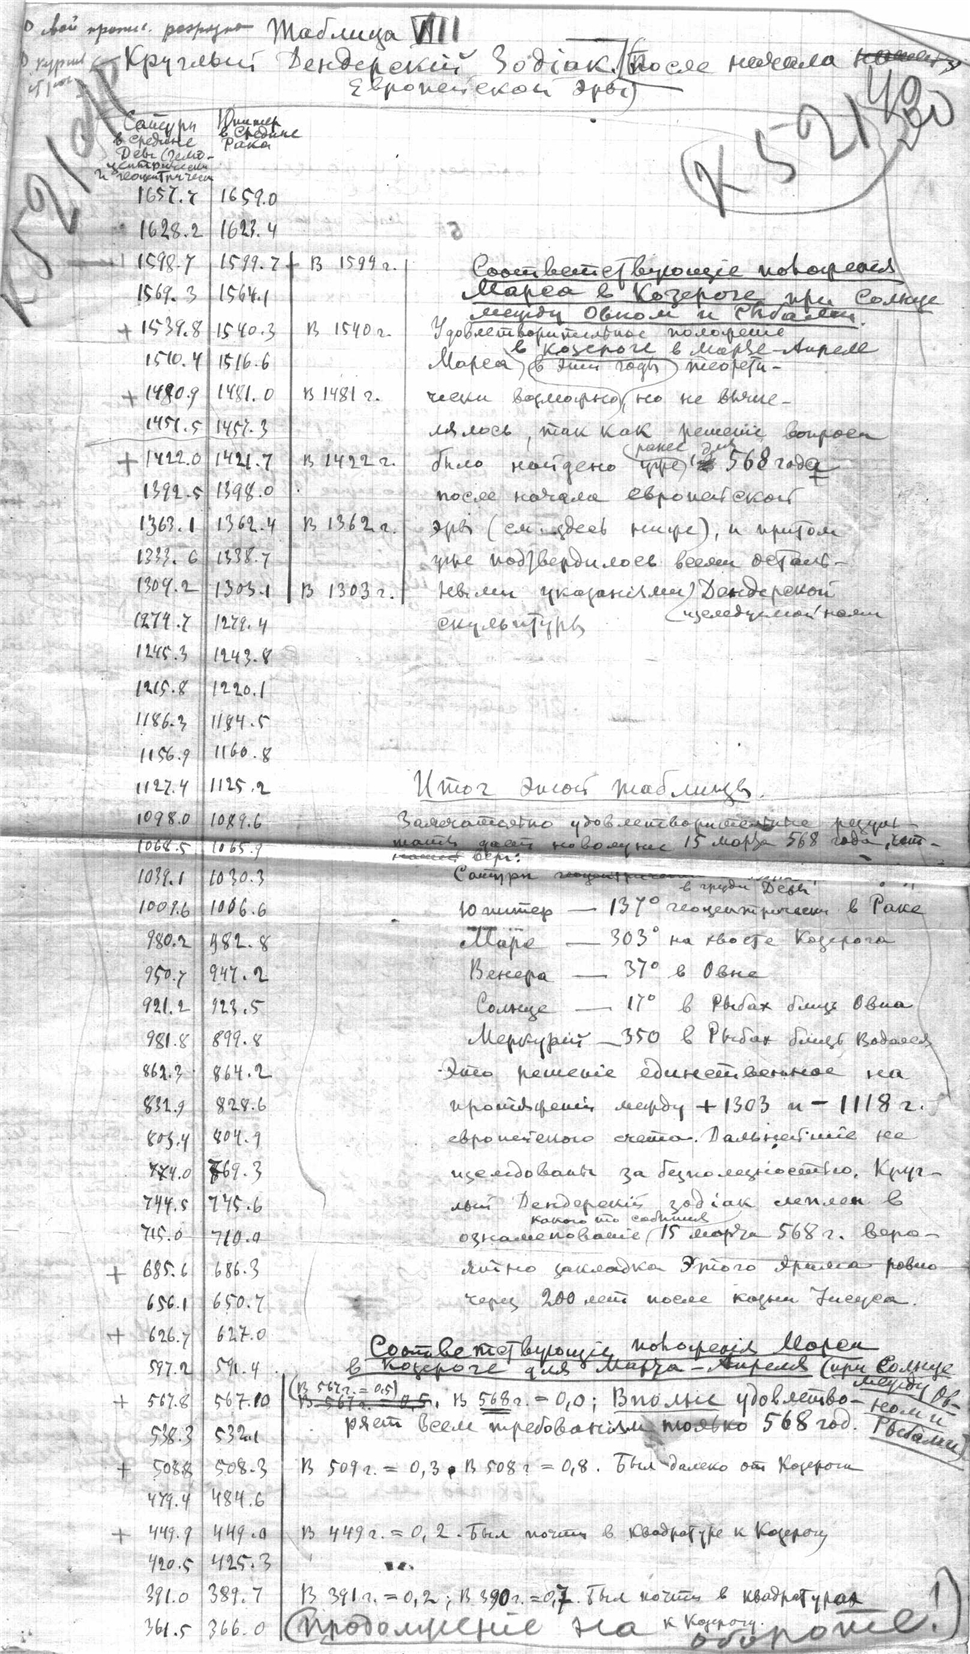 Таблица VIII
Круглый Дендерскій Зодіак (После начала
Европейской эры)
К 521
490
К 521
Сатурн
в средине
Девы (гелио-
центрически
и геоцентрически
Юпитер
в Средине
Рака
1657.7 1659.0
1628.2 1623.4
1598.7 1599.7 + В 1599 г.
1569.3 1564.1
+ 1539.8 1540.3 В 1540 г.
1510.4 1516.6
+ 1480.9 1481.0 В 1481 г.
1451.5 1457.3
+ 1422.0 1421.7 В 1422 г.
1392.5 1398.0
1363.1 1362.4 В 1362 г.
1333.6 1338.7
1304.2 1303.1 В 1303 г.
1274.7 1279.4
1245.3 1243.8
1215.8 1220.1
1186.3 1184.5
1156.9 1160.8
1127.4 1125.2
1098.0 1089.6
1068.5 1065.9
1039.1 1030.3
1009.6 1006.6
980.2 982.8
950.7 947.2
921.2 923.5
981.8 899.8
862.3 864.2
832.9 828.6
803.4 804.9
774.0 769.3
744.5 745.6
715.0 710.0
+ 685.6 686.3
656.1 650.7
+ 626.7 627.0
597.2 591.4
+ 567.8 567.10
538.3 532.1
+ 508.8 508.3
479.4 484.6
+ 449.9 449.0
420.5 425.3
391.0 389.7
361.5 366.0
Соответствующіе положенія
Марса в Козероге при Солнце
между Овном и Рыбами.
Удовлетворительное положение
Марса в Козероге в Марте-Апреле
(в эти годы) теорети-
чески возможно, но не вычис-
лялось, так как решеніе вопроса
было найдено ранее для 568 года
после начала европейской
эры (см. здесь ниже), и притом
уже подтвердилось всеми осталь-
ными указаніями Дендерской
скульптуры
Итог этой таблицы.
Замечательно удовлетворительные резуль-
таты дает новолуние 15 марта 568 года,
Сатурн
в груди Девы
Юпитер — 137° геоцентрически в Раке
Марс — 303° на хвосте Козерога
Венера — 37° в Овне
Солнце — 17° в Рыбах близь Овна
Меркурій — 350 в Рыбах близь Водолея
Это решеніе единственное на
протяженіи между +1303 и −1118 г.
европейского счета. Дальнейшіе не
изследованы за безполезностью. Круг-
лый Дендерскій зодіак леплен в
ознаменованіе какого то событія 15 марта 568 г. веро-
ятно закладка этого храма ровно
через 200 лет после казни Іисуса.
Соответствующіе положенія Марса
в Козероге для Марта-Апреля (при Солнце
между Ов-
ном и
Рыбами)
(В 567 г. = 0,5)
В 568 г. = 0,0; Вполне удовлетво-
ряет всем требованіям только 568 год.
В 509 г. = 0,3. В 508 г = 0,8. Был далеко от Козерога
В 449 г. = 0,2. Был почти в квадратуре к Козерогу
В 391 г. = 0,2; В 390 г. = 0,7. Был почти в квадратурах
к Козерогу.
(продолжение на обороте!)